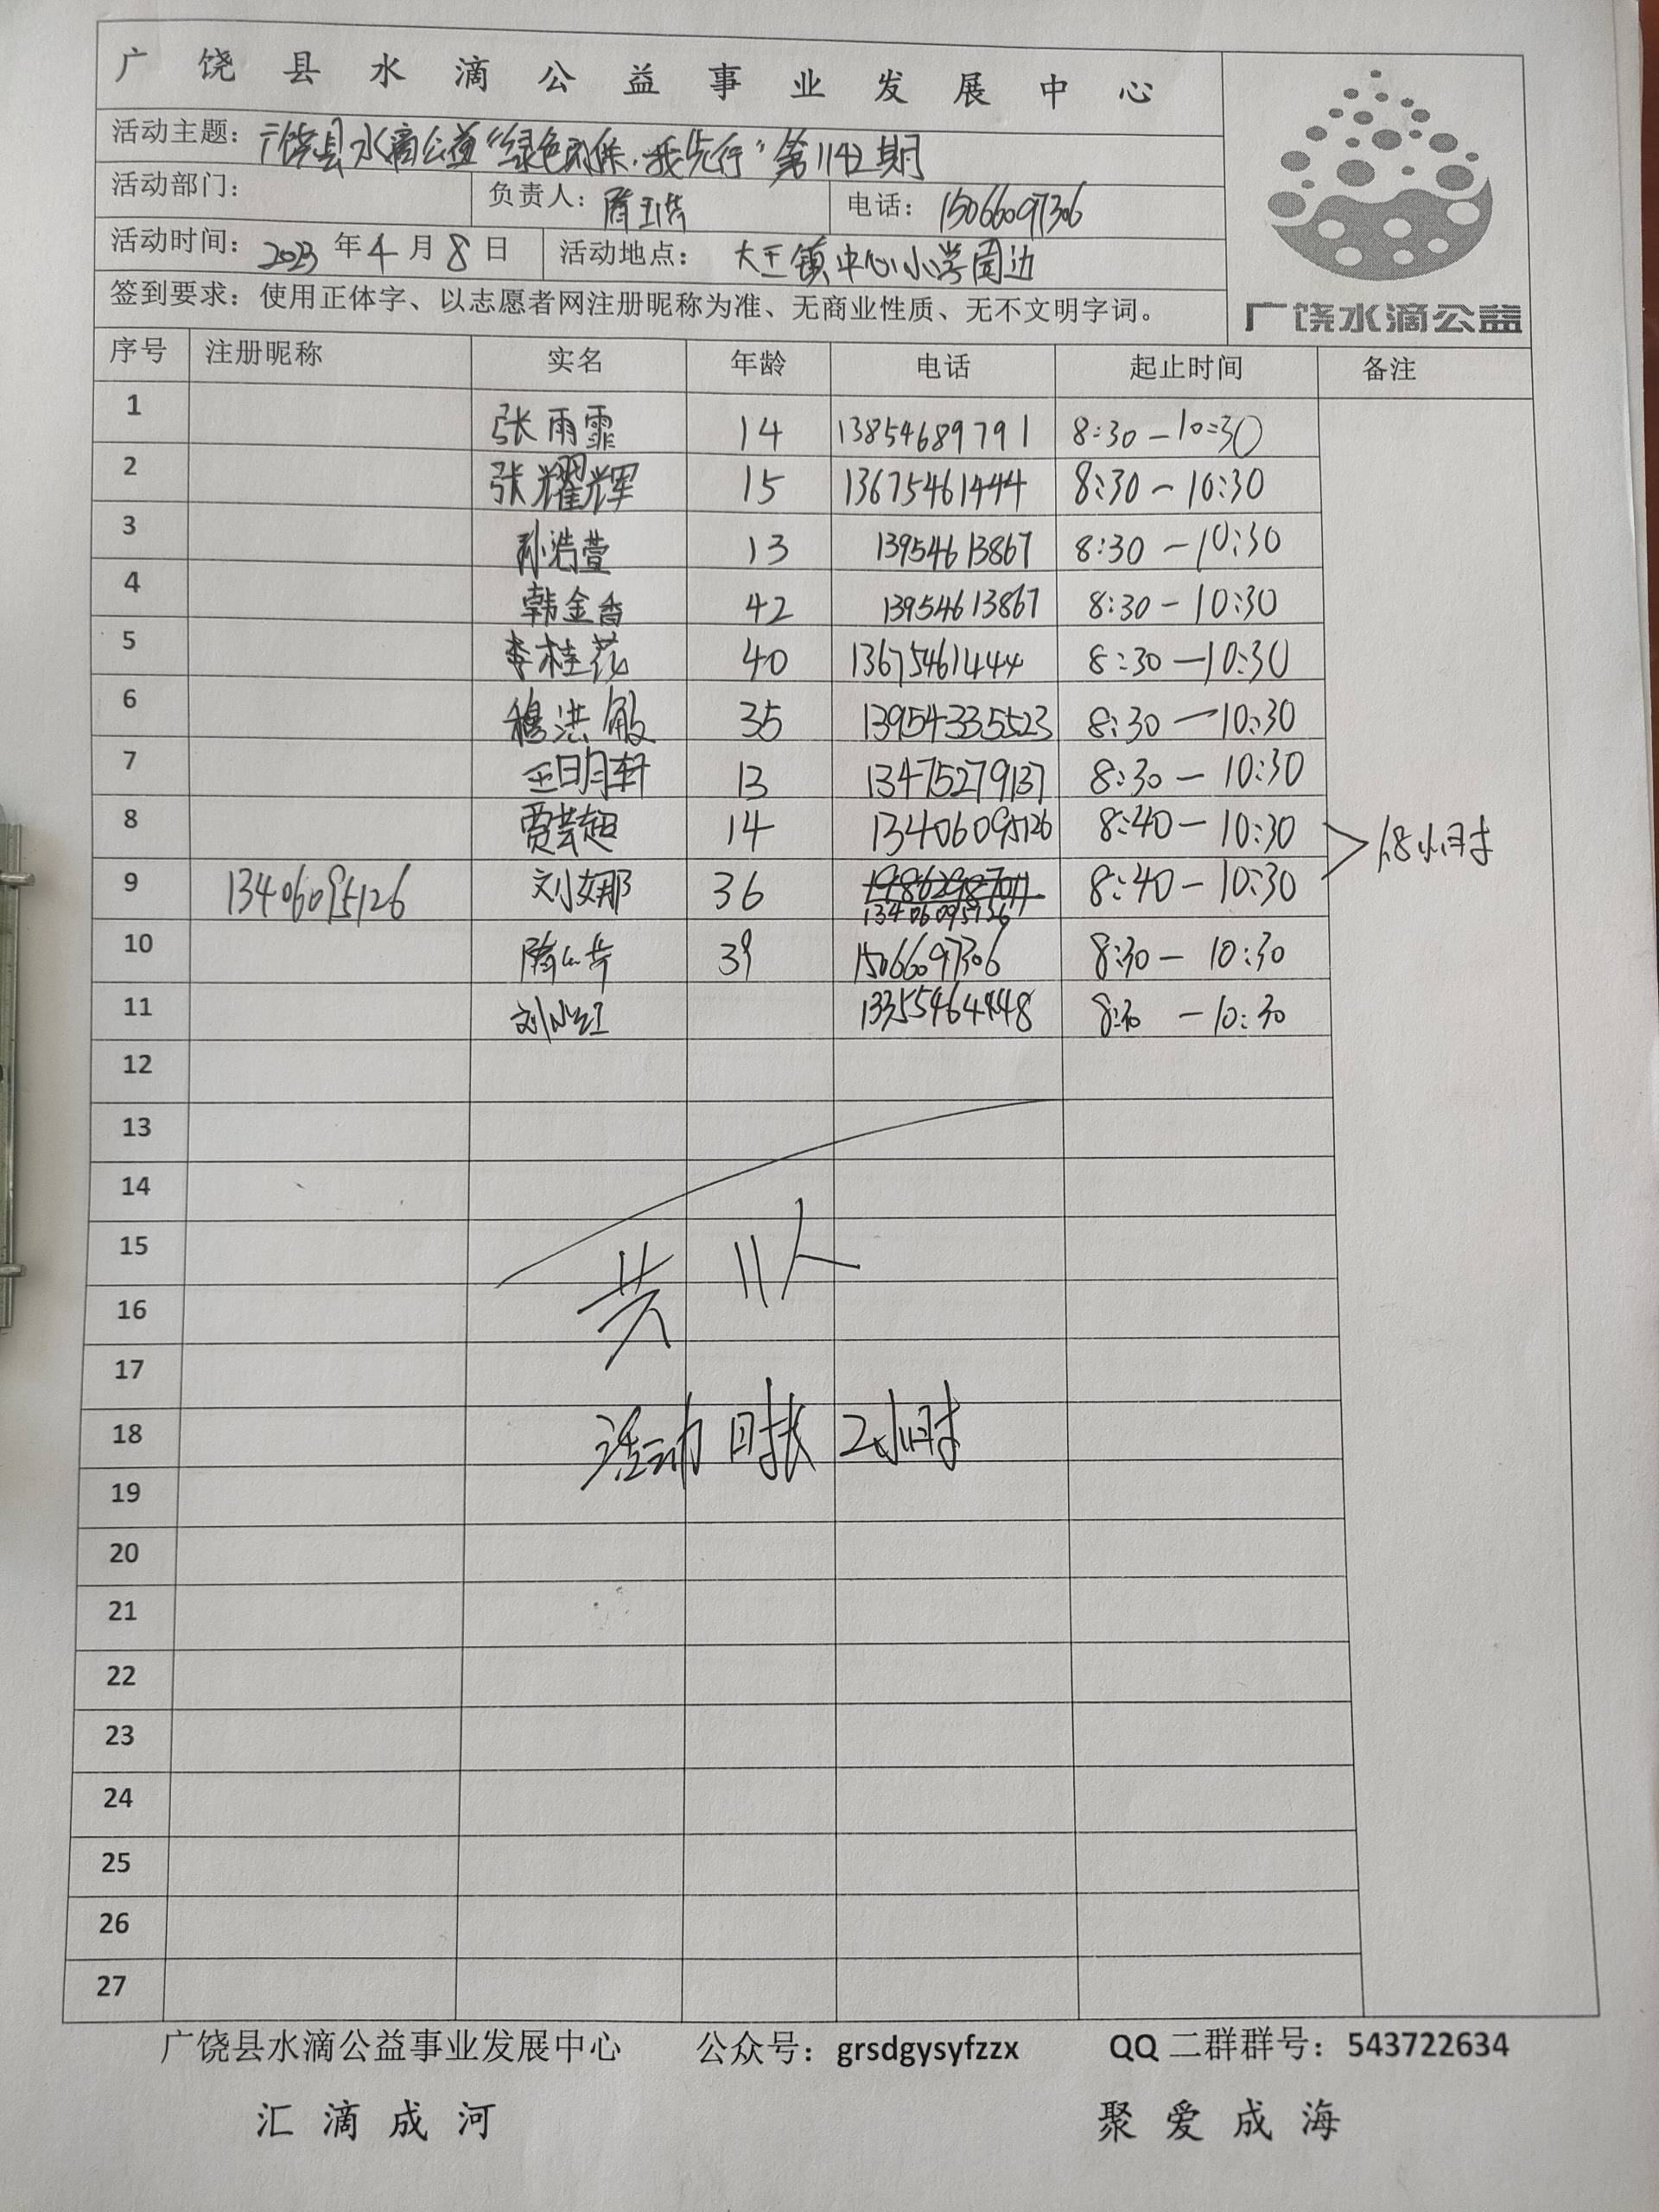 广饶县水滴公益事业发展中心
活动主题：广饶县水滴公益“绿色环保.我先行”第1142期
活动部门： 负责人：隋玉芸 电话：15066097306
活动时间：2023年4月8日 活动地点：大王镇中心小学周边
签到要求：使用正体字、以志愿者网注册昵称为准、无商业性质、无不文明字词。
广饶水滴公益
序号 注册昵称 实名 年龄 电话 起止时间 备注
1 张雨霏 14 13854689791 8:30-10:30
2 张耀辉 15 13675461444 8:30-10:30
3 孙浩萱 13 13954613867 8:30-10:30
4 韩金香 42 13954613867 8:30-10:30
5 李桂花 40 13675461444 8:30-10:30
6 穆洪敏 35 13954335523 8:30-10:30
7 王明轩 13 13475279137 8:30-10:30
8 贾芸超 14 13406095126 8:40-10:30
1.8小时
9 13406095126 刘娜 36 13406095126 8:40-10:30
10 39 15066097306 8:30-10:30
11 刘小红 13355464448 8:30-10:30
12
13
14
15
共11人
16
17
18
活动时长2小时
19
20
21
22
23
24
25
26
27
广饶县水滴公益事业发展中心 公众号：grsdgysyfzzx QQ二群群号：543722634
汇滴成河 聚爱成海